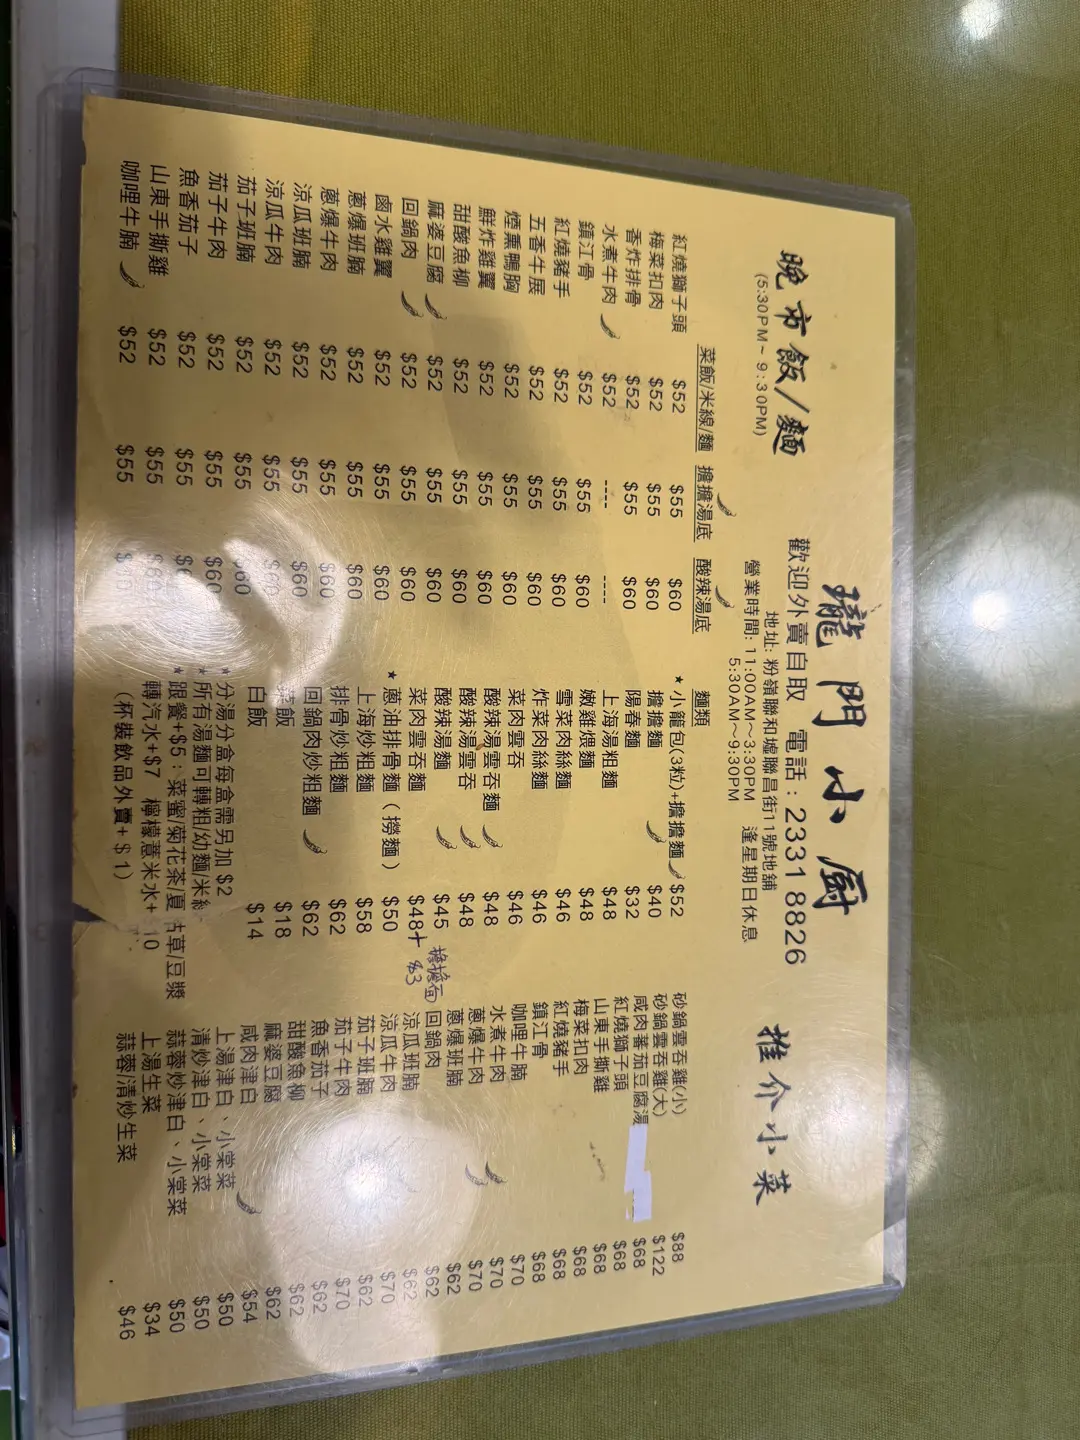 瓏門小廚
歡迎外賣自取 電話：2331 8826
地址: 粉嶺聯和墟聯昌街11號地舖
營業時間: 11:00AM～3:30PM 逢星期日休息
5:30AM～9:30PM
晚市飯/麵
(5:30PM~ 9:30PM)
菜飯/米線/麵 擔擔湯底 酸辣湯底
紅燒獅子頭 $52 $55 $60
梅菜扣肉 $52 $55 $60
香炸排骨 $52 $55 $60
水煮牛肉 $52 ---- ----
鎮江骨 $52 $55 $60
紅燒豬手 $52 $55 $60
五香牛展 $52 $55 $60
煙熏鴨胸 $52 $55 $60
鮮炸雞翼 $52 $55 $60
甜酸魚柳 $52 $55 $60
麻婆豆腐 $52 $55 $60
回鍋肉 $52 $55 $60
鹵水雞翼 $52 $55 $60
蔥爆班腩 $52 $55 $60
蔥爆牛肉 $52 $55 $60
涼瓜班腩 $52 $55 $60
涼瓜牛肉 $52 $55 $60
茄子班腩 $52 $55 $60
茄子牛肉 $52 $55 $60
魚香茄子 $52 $55
山東手撕雞 $52 $55
咖哩牛腩 $52 $55
麵類
★小籠包(3粒)+擔擔麵 $52
擔擔麵 $40
陽春麵 $32
上海湯粗麵 $48
嫩雞煨麵 $48
雪菜肉絲麵 $46
炸菜肉絲麵 $46
菜肉雲吞 $46
酸辣湯雲吞麵 $48
酸辣湯雲吞 $48
酸辣湯麵 $45 擔擔面
菜肉雲吞麵 $48+$3
★蔥油排骨麵（撈麵） $50
上海炒粗麵 $58
排骨炒粗麵 $62
回鍋肉炒粗麵 $62
菜飯 $18
白飯 $14
★分湯分盒每盒需另加 $2
★所有湯麵可轉粗/幼麵/米
★跟餐+$5：菜蜜/菊花茶/夏枯草/豆漿
轉汽水+$7 檸檬薏米水+$10
（杯裝飲品外賣+$1）
推介小菜
砂鍋雲吞雞(小) $88
砂鍋雲吞雞(大) $122
咸肉蕃茄豆腐湯 $68
紅燒獅子頭 $68
山東手撕雞 $68
梅菜扣肉 $68
紅燒豬手 $68
鎮江骨 $68
咖哩牛腩 $70
水煮牛肉 $70
蔥爆牛肉 $70
蔥爆班腩 $62
回鍋肉 $62
涼瓜班腩 $62
涼瓜牛肉 $70
茄子班腩 $62
茄子牛肉 $70
魚香茄子 $62
甜酸魚柳 $62
麻婆豆腐 $62
咸肉津白 $54
上湯津白、小棠菜 $50
清炒津白、小棠菜 $50
蒜蓉炒津白、小棠菜 $50
上湯生菜 $34
蒜蓉/清炒生菜 $46